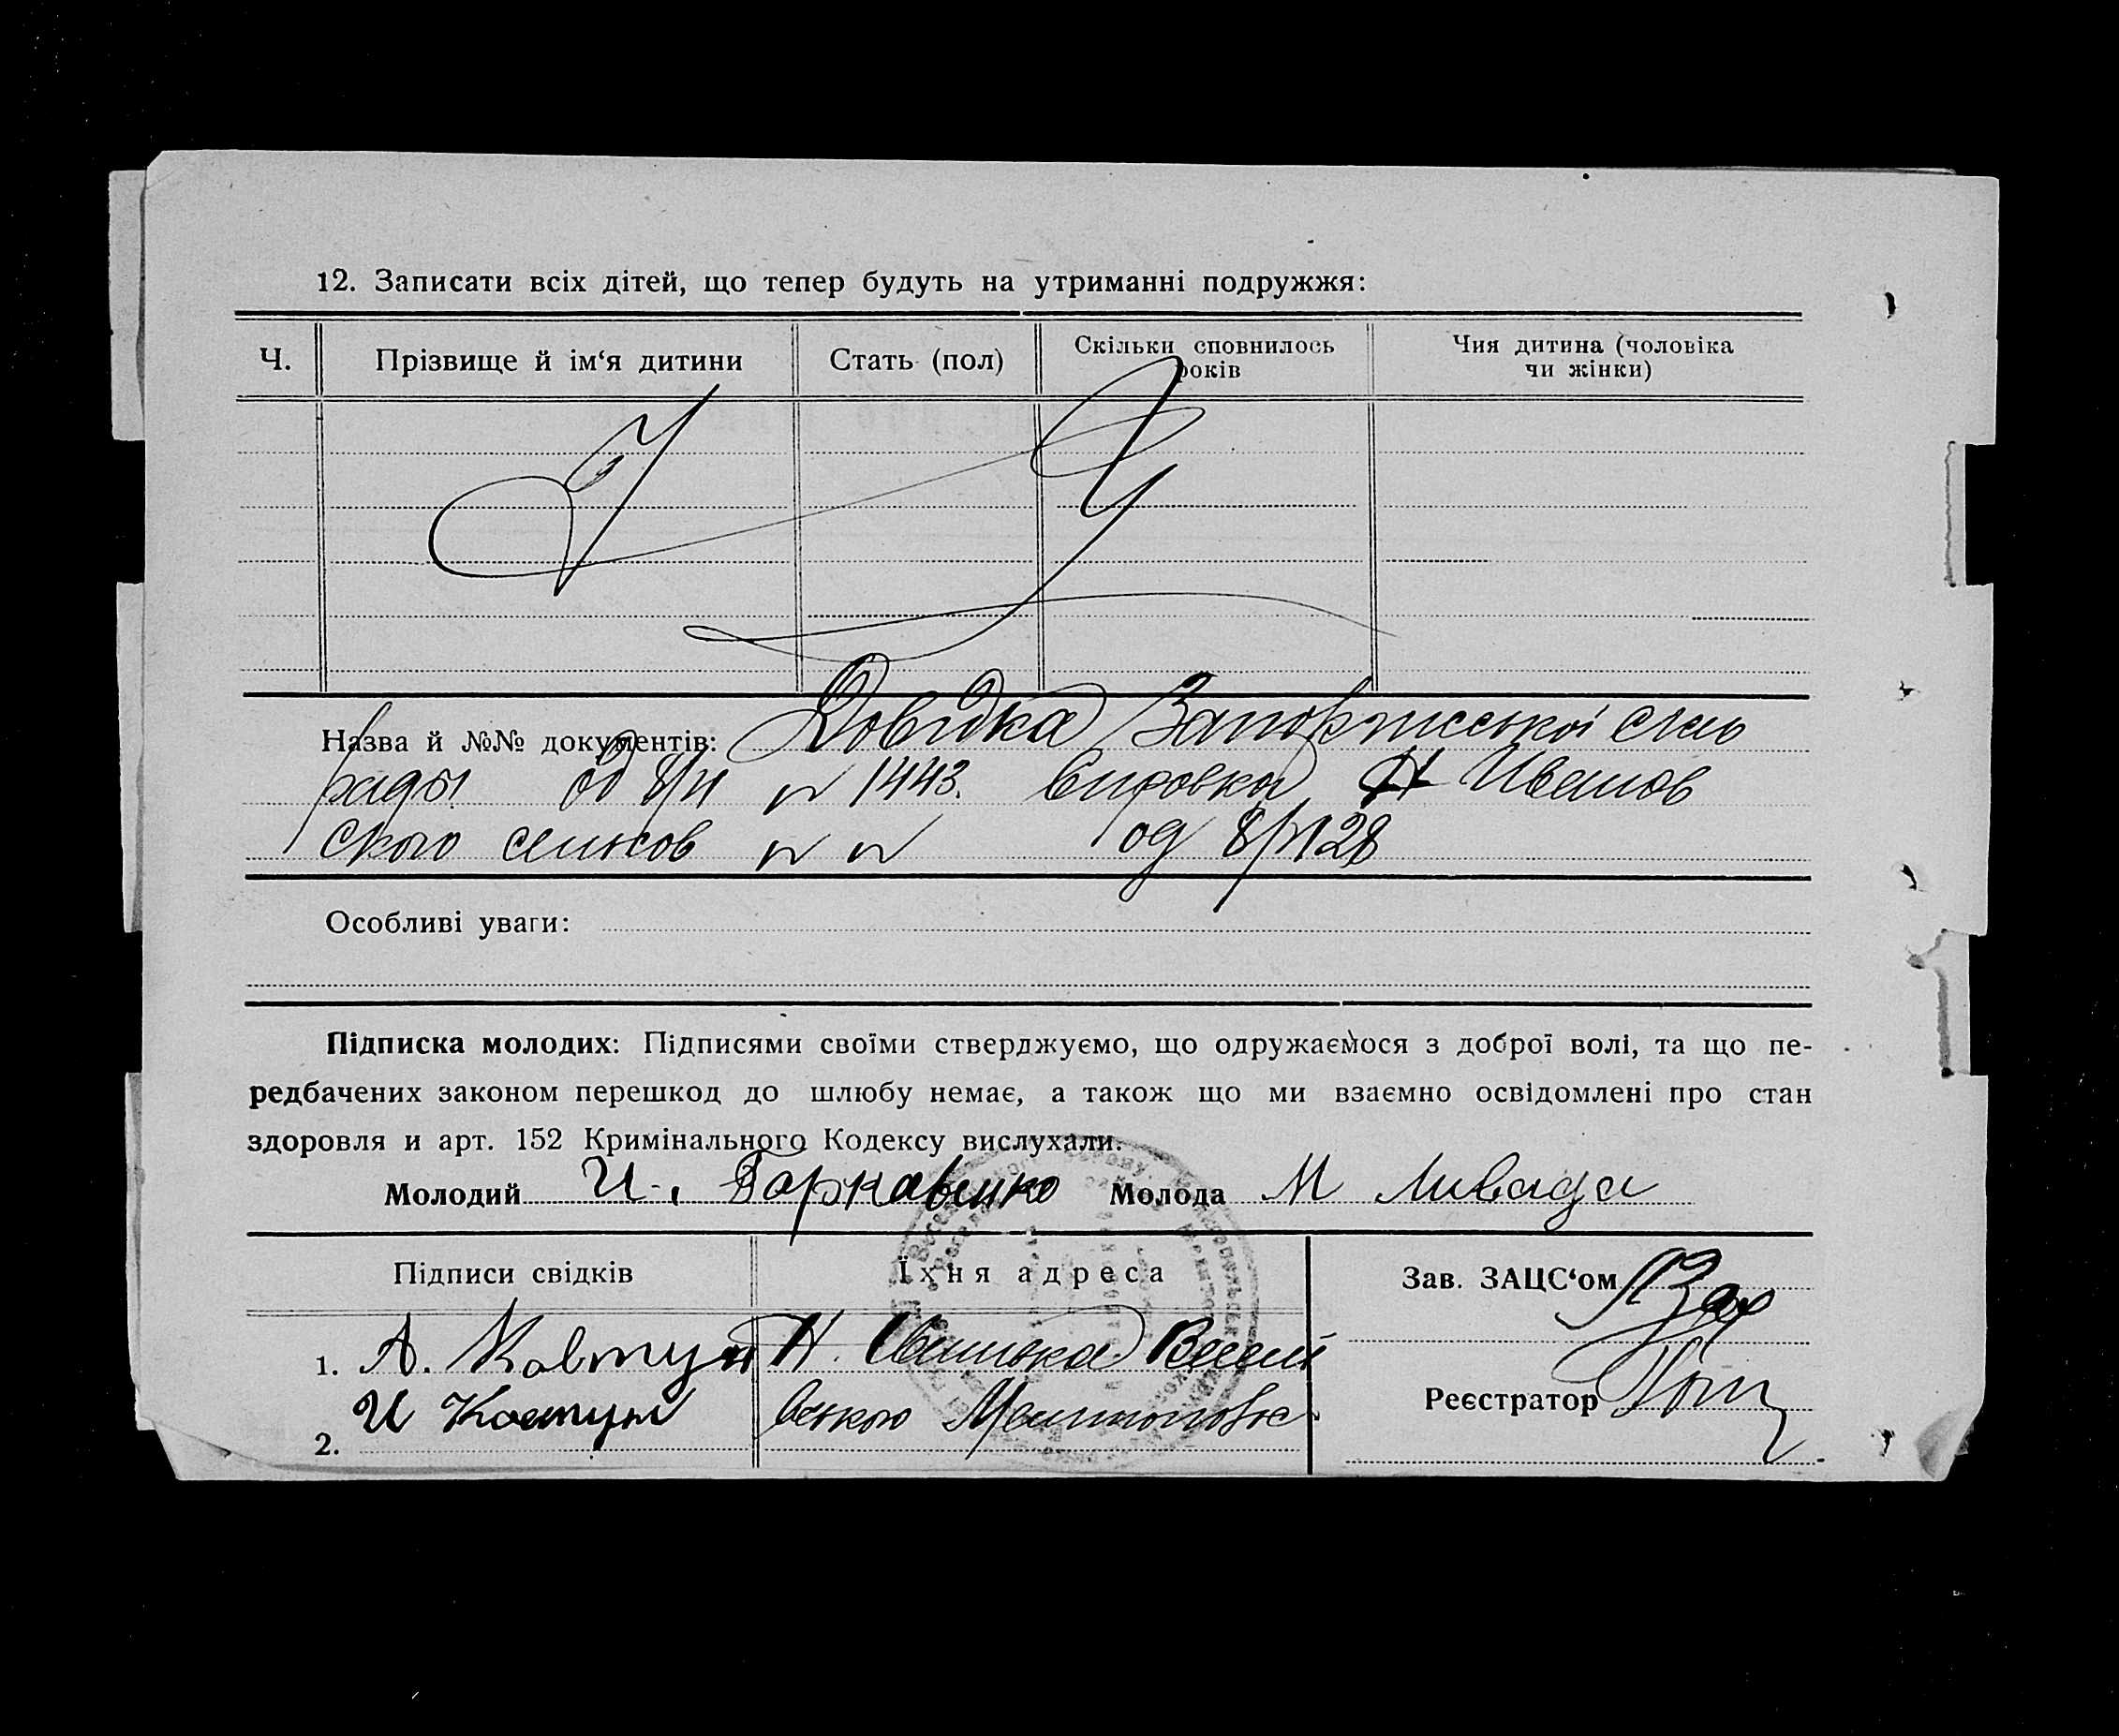 12. Записати всіх дітей, що тепер будуть на утриманні подружжя:
Ч. Прізвище й ім‘я дитини Стать (пол) Скільки сповнилось років Чия дитина (чоловіка чи жінки)
Назва й №№ документів: Довідка Запоріжської сель
рады од 8/VI № 1443. Справка Н Иванов
ского од 8/VI 28
Особливі уваги:
Підписка молодих: Підписями своїми стверджуємо, що одружаємося з доброї волі, та що пе-
редбачених законом перешкод до шлюбу немає, а також що ми взаємно освідомлені про стан
здоровля и арт. 152 Кримінального Кодексу вислухали.
Молодий И. Гаркавенко Молода М Ливада
Підписи свідків Їхня адреса Зав. ЗАЦС‘ом
1. А. Ковтун Н.
Реєстратор
2. И Ковтун